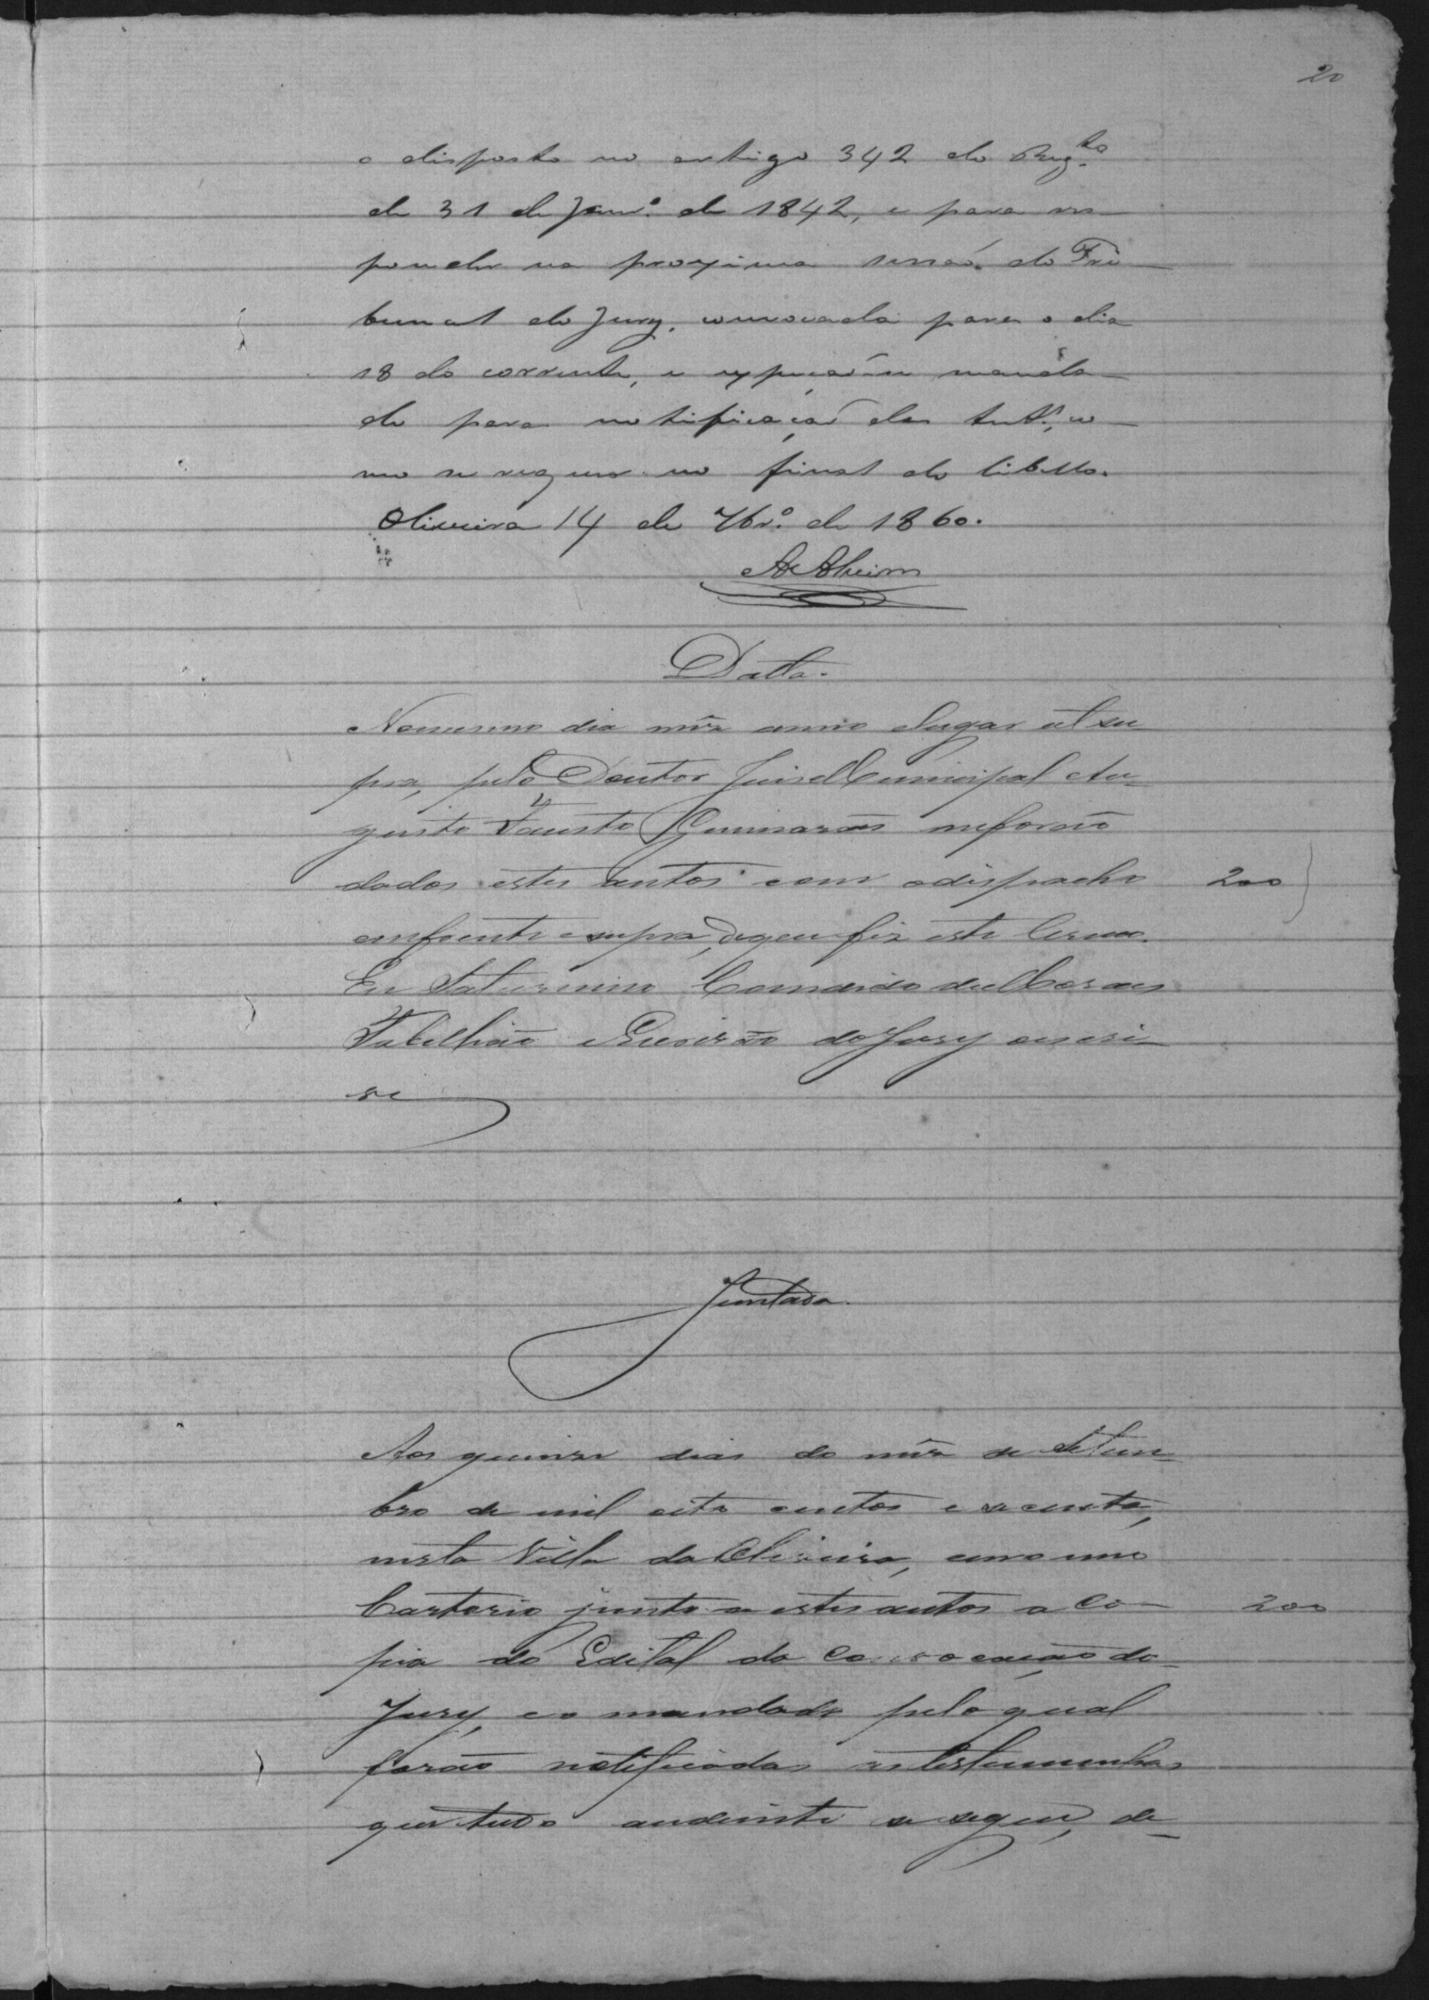 20
o disposto no artigo 342 do Reg.to
de 31 de Janr.º de 1842, e para res-
ponder na proxima sessaõ do Tri-
bunal do Jury, convocada para o dia
18 do corrente, e expeçaõ-se manda-
do para notificaçaõ das test.as, co-
mo se requer no final do libello.
Oliveira 14 de 7br.º de 1860.
Data.
No mesmo dia mês anno elugar ut su-
pra, pelo Doutor Juis Municipal Au-
gusto Fausto Guimaraẽs meforaõ
dados estes autos com odespacho 200
emfrente esupra, dequefiz este termo.
Eu Saturnino Comardo de Moraes
Tabelliaõ eEscrivaõ do Jury oescri-
vi
Juntada.
Aos quinze dias do mês de Setem-
bro de mil oito centos e secenta,
nesta Villa da Oliveira, em o meo
Cartorio junto a estes autos a co- 200
pia do Edital da Convocaçaõ do
Jury, e o mandado pelo qual
foraõ notificadas as testemunhas
que tudo audeinte se segue, de-